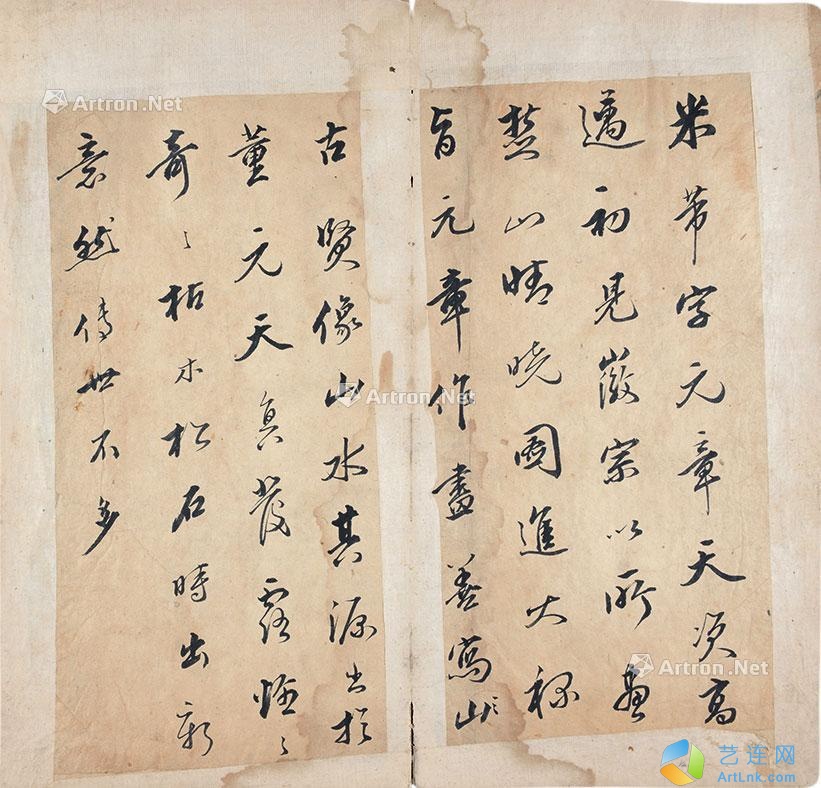 米芾字元章天資高
邁初見徽宗以所畫
楚山晴曉圖進大稱
旨元章作畫善寫山
古賢像山水其源出於
董元天真發露怪〻
奇〻枯木松石時出新
意然傳世不多
Artron.Net
Artron.Net
Artron.Net
Artron.Net
艺连网
ArtLnk.com